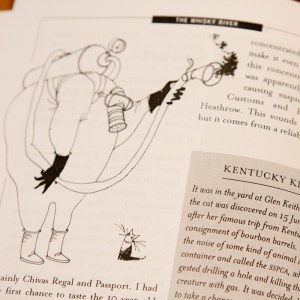 THE WHISKY RIVER
concentrated
make it even
this concen
was apparently
causing susp
Customs and
Heathrow. This sounds
but it comes from a relia
KENTUCKY K
It was in the yard at Glen Keith
the cat was discovered on 15 Ju
after her famous trip from Kentu
consignment of bourbon barrels.
the noise of some kind of animal
container and called the SSPCA,
gested drilling a hole and killing
creature with gas. It was decided
to take a chance
ainly Chivas Regal and Passport. I had
first chance to taste the 10 year old